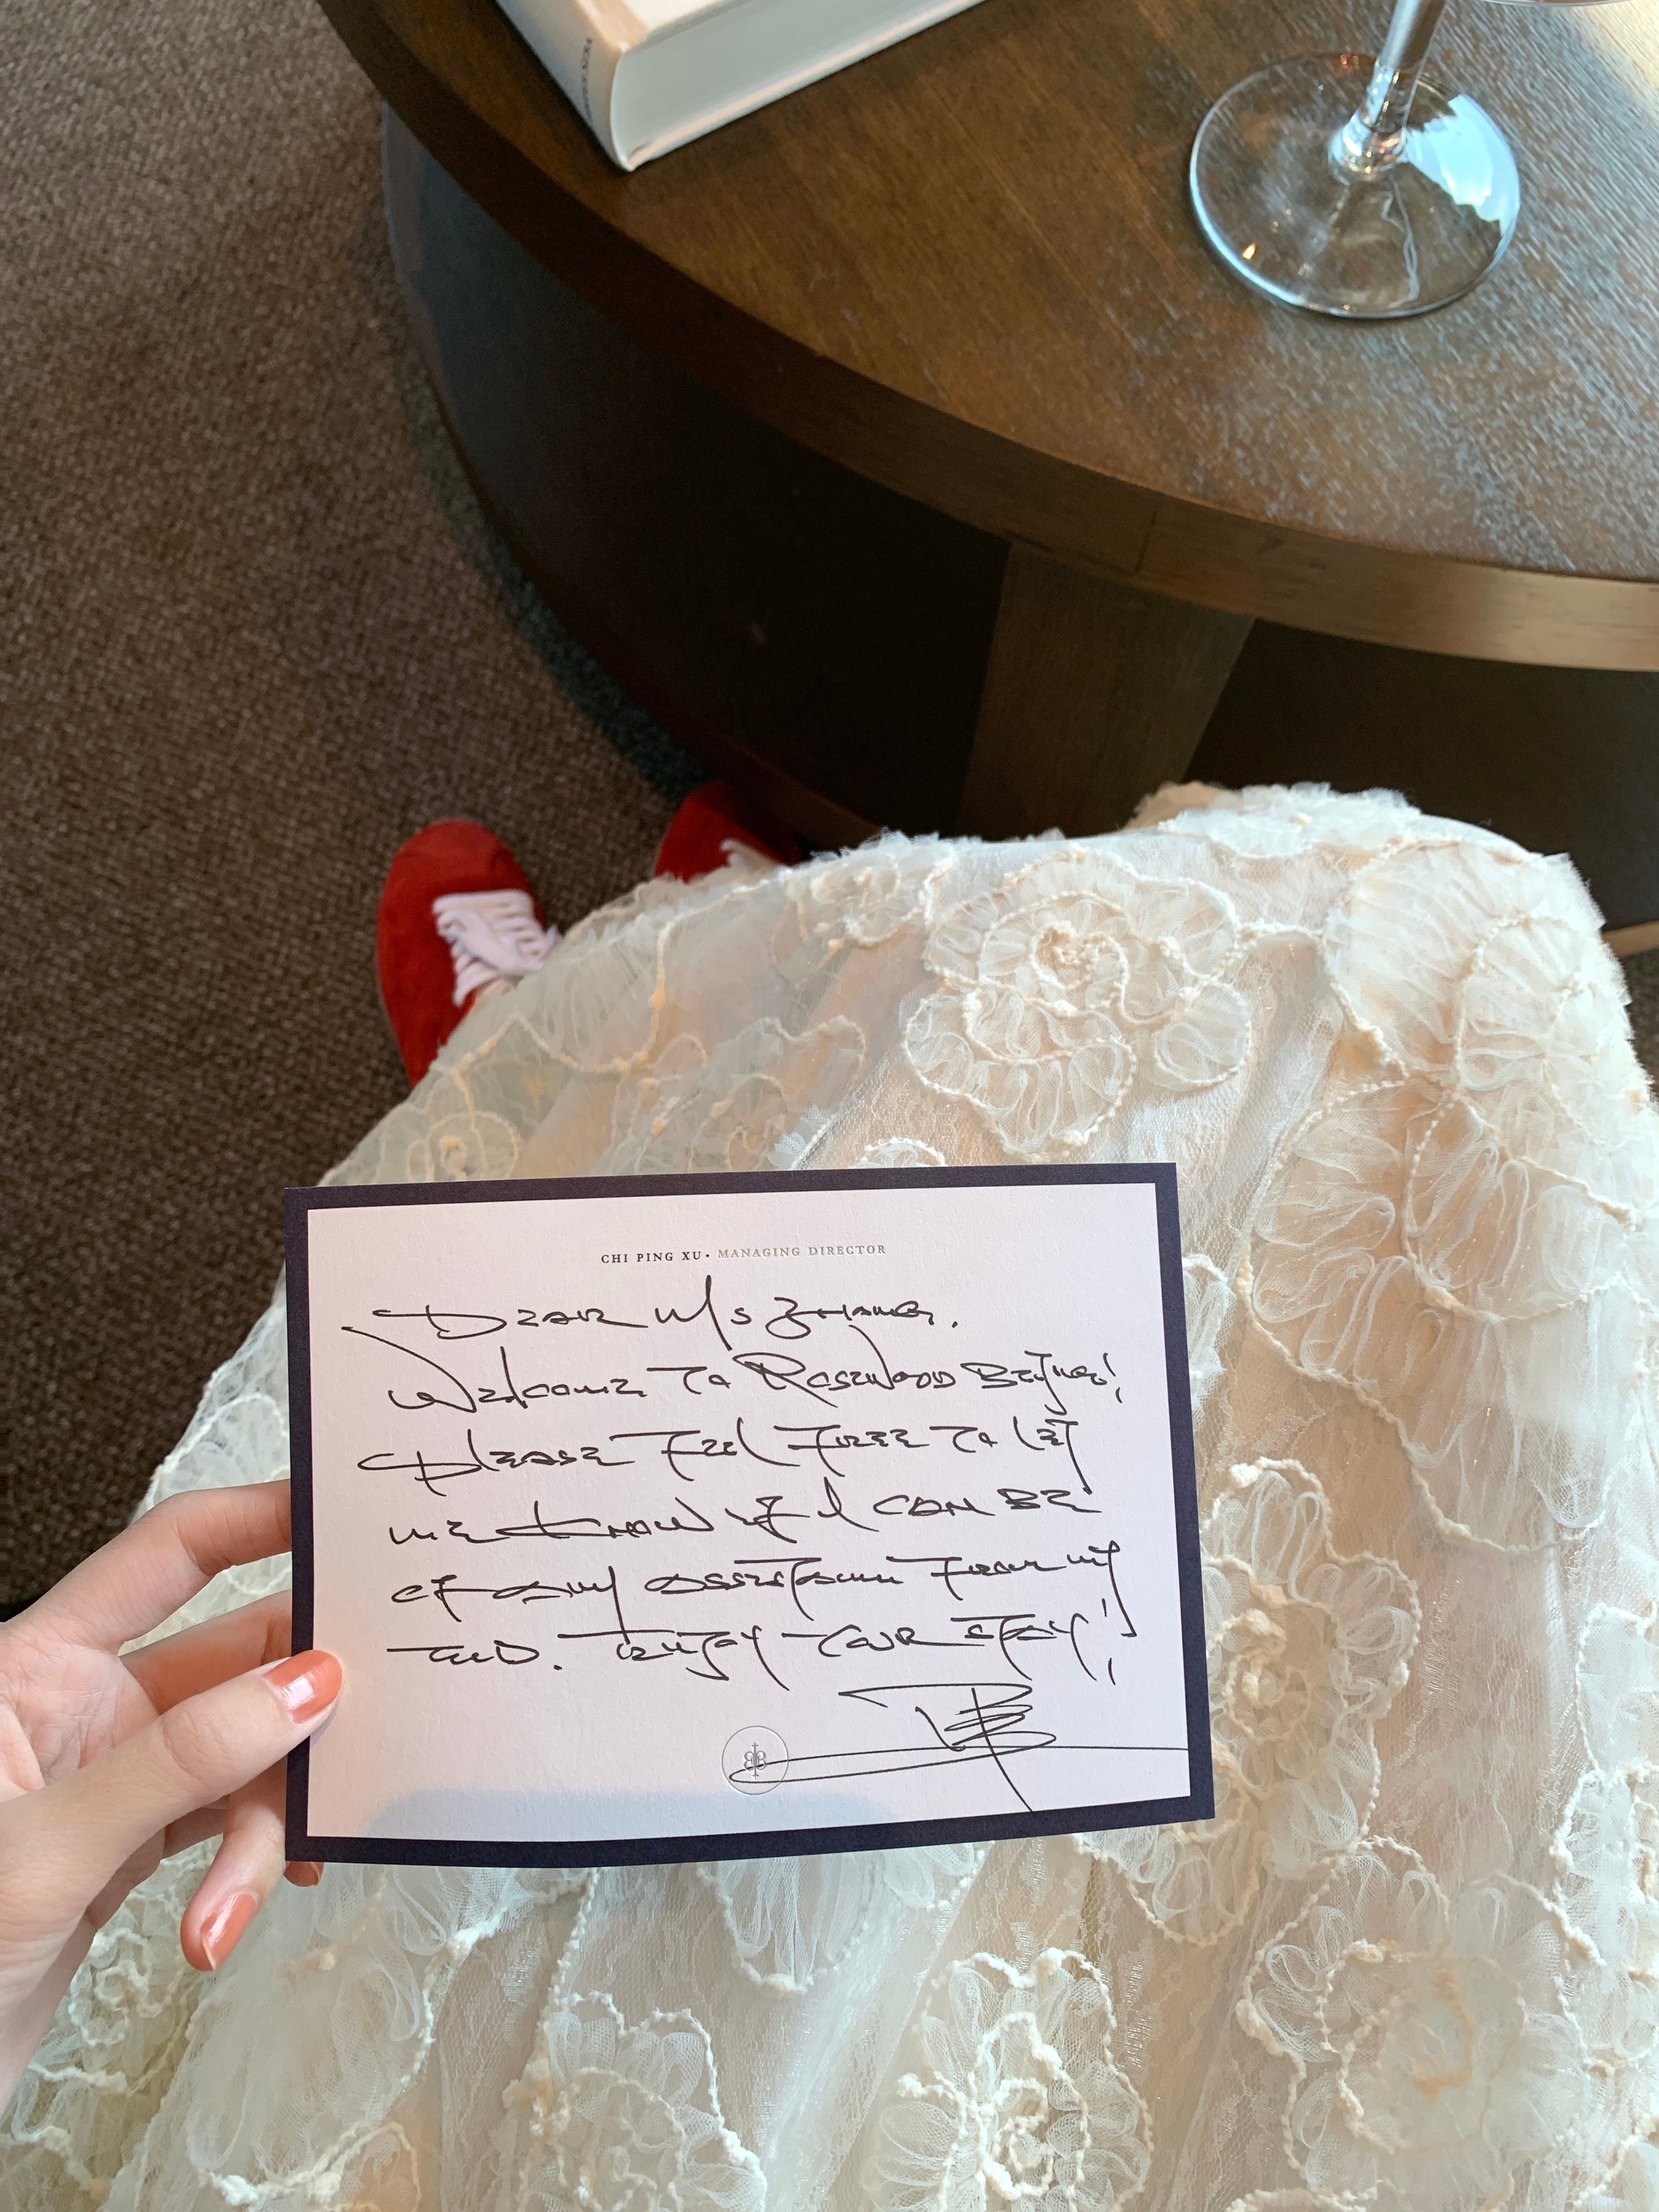 CHI PING XU • MANAGING DIRECTOR
DEAR Ms ZHANG,
Welcome To Rosewood Beijing!
Please Feel Free To let
me know if I can be
of any assistance from my
end. Enjoy your stay!